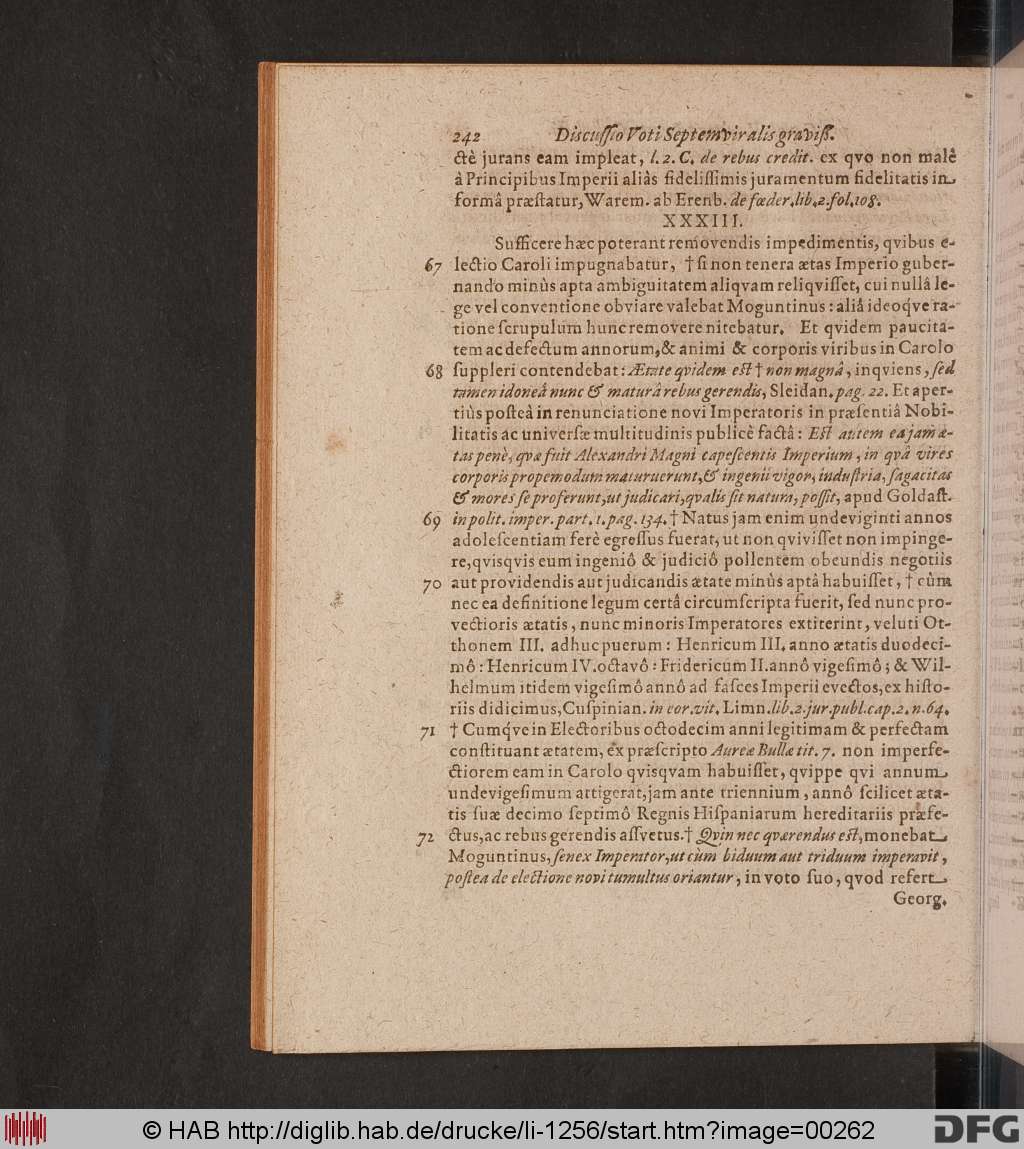 242 Discuſſio Voti Septemviralis graviß.
ctè jurans eam impleat, l. 2. C. de rebus credit. ex qvo non malè
à Principibus Imperii aliàs fideliſſimis juramentum fidelitatis in
formâ præſtatur, Warem. ab Erenb. de fœder. lib. 2. fol. 108.
XXXIII.
Sufficere hæc poterant removendis impedimentis, qvibus e-
67 lectio Caroli impugnabatur, † ſi non tenera ætas Imperio guber-
nando minùs apta ambiguitatem aliqvam reliqviſſet, cui nullâ le-
ge vel conventione obviare valebat Moguntinus: aliâ ideoqve ra-
tione ſcrupulum hunc removere nitebatur. Et qvidem paucita-
tem ac defectum annorum, & animi & corporis viribus in Carolo
68 ſuppleri contendebat: Ætate qvidem eſt † non magnâ, inqviens, ſed
tamen idoneâ nunc & maturâ rebus gerendis, Sleidan. pag. 22. Et aper-
tiùs poſteà in renunciatione novi Imperatoris in præſentiâ Nobi-
litatis ac univerſæ multitudinis publicè factâ: Eſt autem ea jam æ-
tas penè, qvæ fuit Alexandri Magni capeſcentis Imperium, in qvâ vires
corporis propemodum maturuerunt, & ingenii vigor, induſtria, ſagacitas
& mores ſe proferunt, ut judicari, qvalis ſit natura, poſſit, apud Goldaſt.
69 in polit. imper. part. 1. pag. 134. † Natus jam enim undeviginti annos
adoleſcentiam ferè egreſſus fuerat, ut non qviviſſet non impinge-
re, qviſqvis eum ingeniô & judiciô pollentem obeundis negotiis
70 aut providendis aut judicandis ætate minùs aptâ habuiſſet, † cùm
nec ea definitione legum certâ circumſcripta fuerit, ſed nunc pro-
vectioris ætatis, nunc minoris Imperatores extiterint, veluti Ot-
thonem III. adhuc puerum: Henricum III. anno ætatis duodeci-
mô: Henricum IV. octavô: Fridericum II. annô vigeſimô; & Wil-
helmum itidem vigeſimô annô ad faſces Imperii evectos, ex hiſto-
riis didicimus, Cuſpinian. in eor. vit. Limn. lib. 2. jur. publ. cap. 2. n. 64.
71 † Cumqve in Electoribus octodecim anni legitimam & perfectam
conſtituant ætatem, ex præſcripto Aureæ Bullæ tit. 7. non imperfe-
ctiorem eam in Carolo qviſqvam habuiſſet, qvippe qvi annum
undevigeſimum attigerat, jam ante triennium, annô ſcilicet æta-
tis ſuæ decimo ſeptimô Regnis Hiſpaniarum hereditariis præfe-
72 ctus, ac rebus gerendis aſſvetus. † Qvin nec qværendus eſt, monebat
Moguntinus, ſenex Imperator, ut cùm biduum aut triduum imperavit,
poſtea de electione novi tumultus oriantur, in voto ſuo, qvod refert
Georg.
© HAB http://diglib.hab.de/drucke/li-1256/start.htm?image=00262
DFG